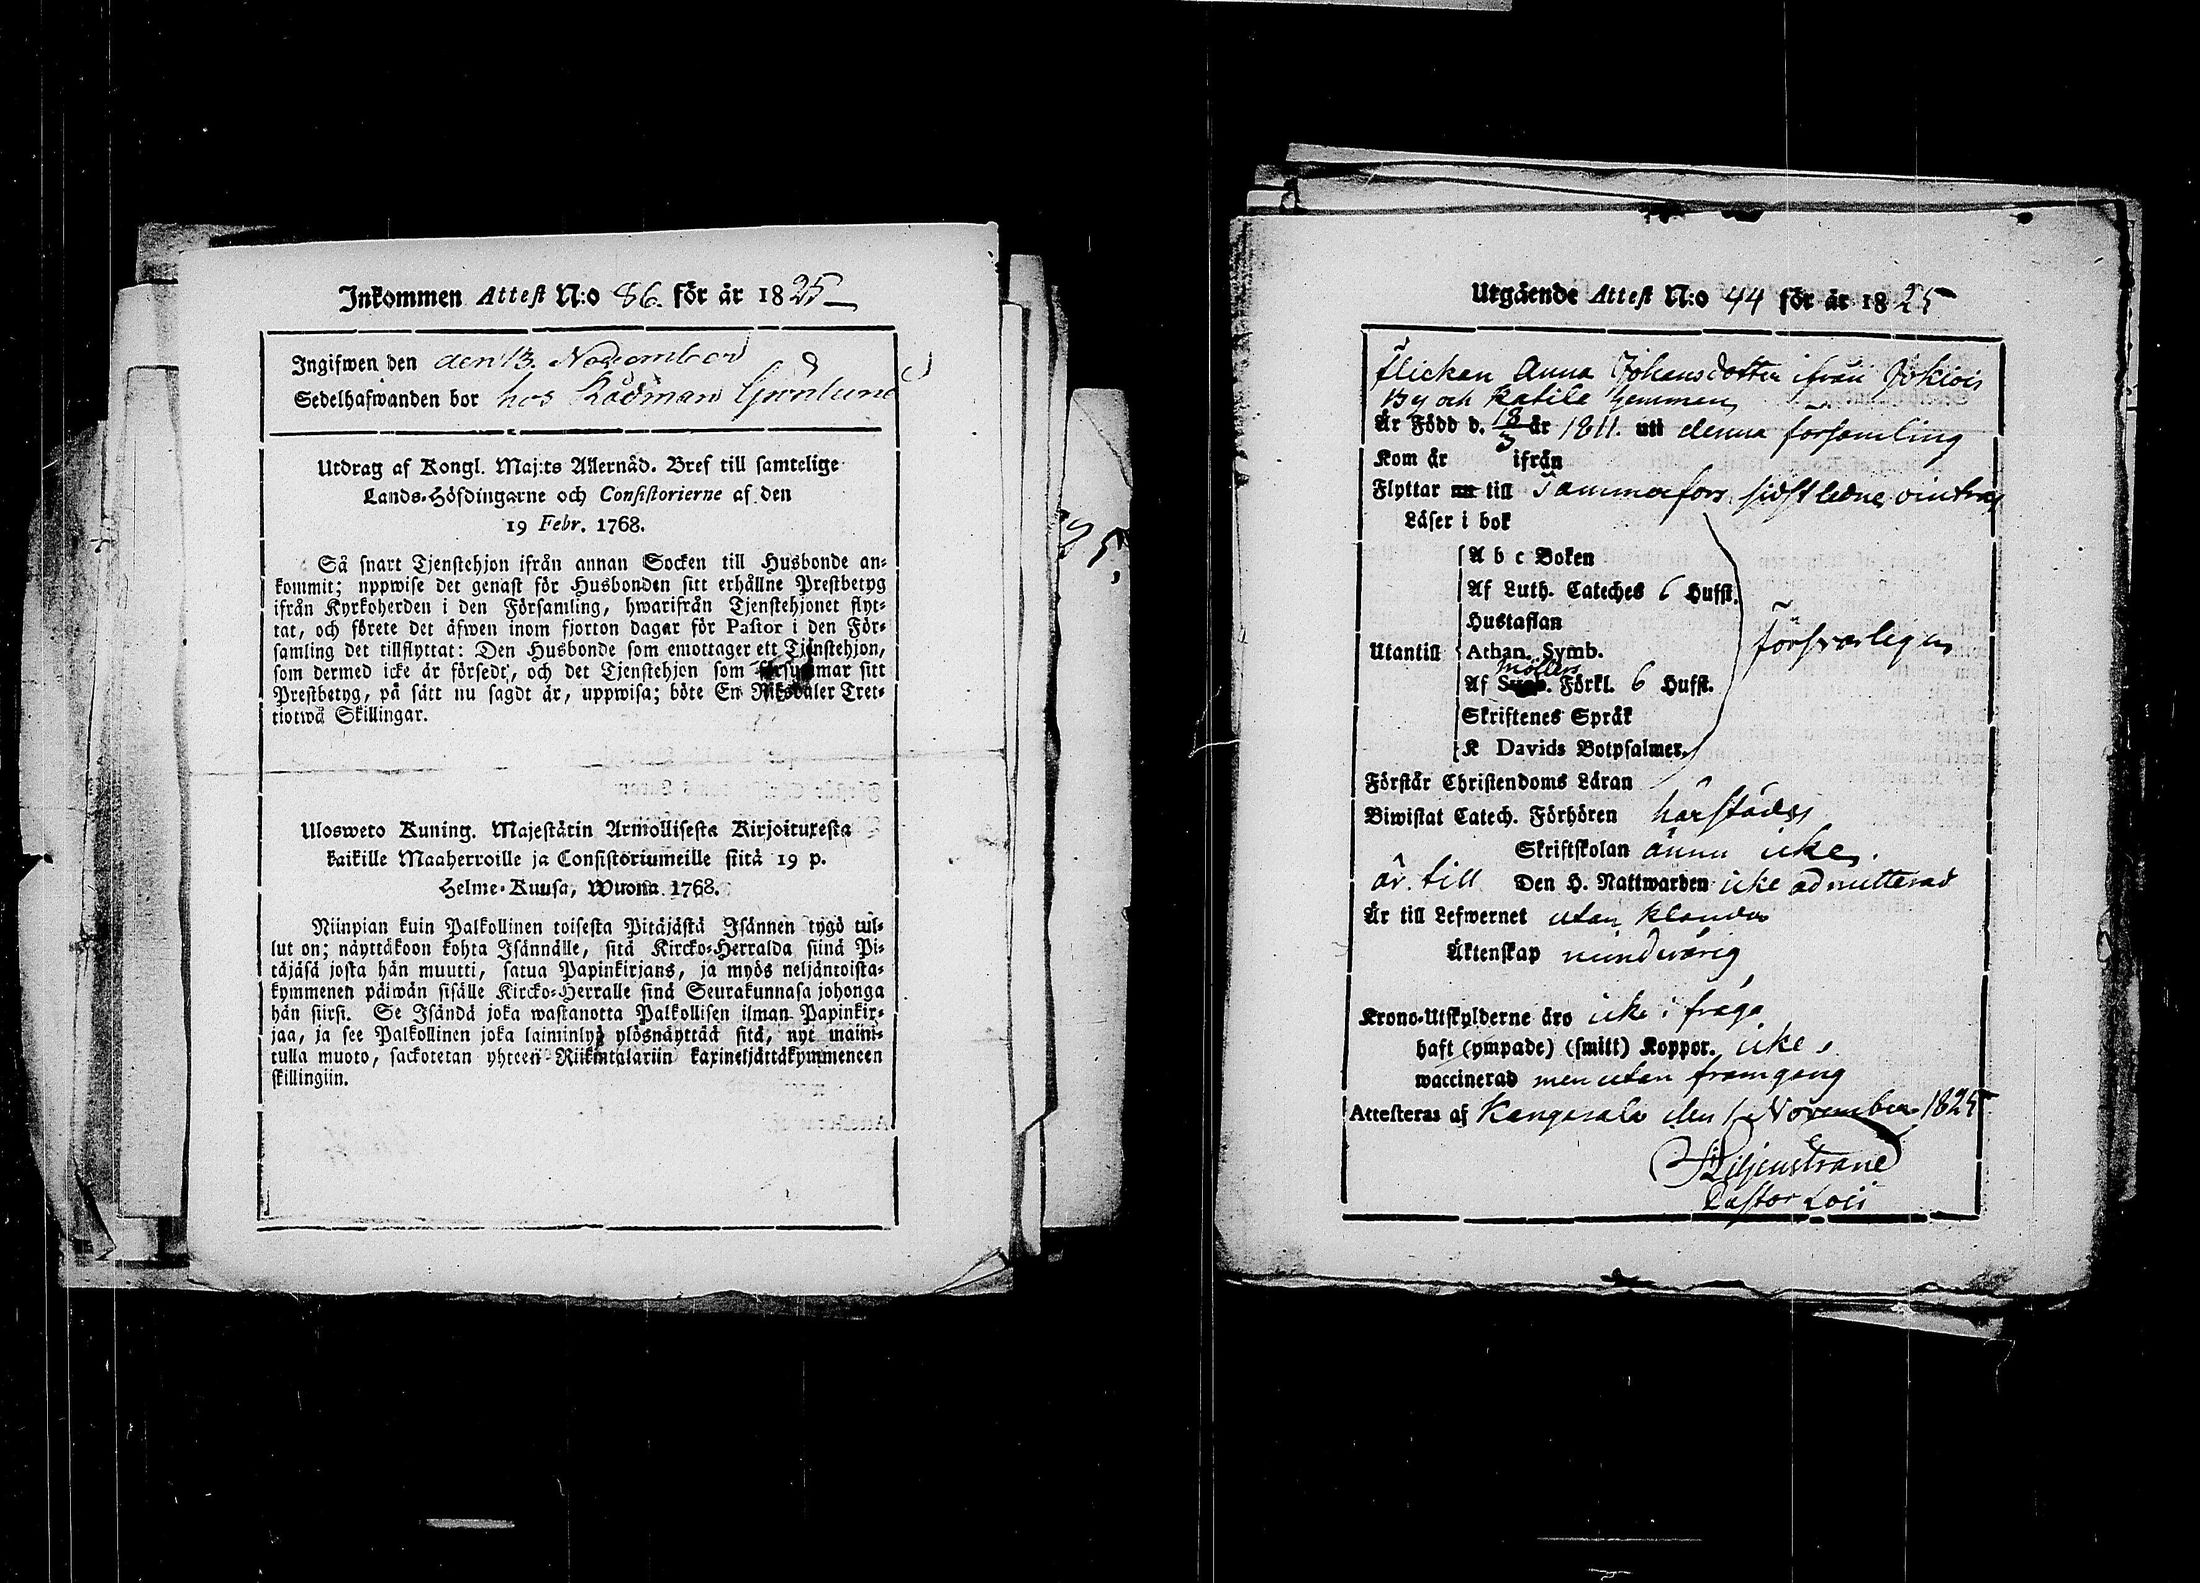 Inkommen Attest N:o 86. för år 1825
Ingifwen den den 13. November
Sedelhafwanden bor hos Rådman Grönlund
Utdrag af Kongl. Maj:ts Allernåd. Bref till samtelige
Lands-Höfdingarne och Consistorierne af den
19 Febr. 1768.
Så snart Tjenstehjon ifrån annan Socken till Husbonde an-
kommit; uppwise det genast för Husbonden sitt erhållne Prestbetyg
ifrån Kyrkoherden i den Församling, hwarifrån Tjenstehjonet flyt-
tat, och förete det äfwen inom fjorton dagar för Pastor i den För-
samling det tillflyttat: Den Husbonde som emottager ett Tjenstehjon,
som dermed icke är försedt, och det Tjenstehjon som försummar sitt
Prestbetyg, på sätt nu sagdt är, uppwisa; böte En Riksdaler Tret-
tiotwå Skillingar.
Ulosweto Kuning. Majestätin Armollisesta Kirjoituresta
kaikille Maaherroille ja Consistoriumeille siitä 19 p.
Helme-Kuusa, Wuona 1768.
Niinpian kuin Palkollinen toisesta Pitäjästä Isännen tygö tul-
lut on; näyttäkoon kohta Isännälle, sitä Kircko-Herralda siinä Pi-
täjäsä josta hän muutti, satua Papinkirjans, ja myös neljäntoista-
kymmenen päiwän sisälle Kircko-Herralle sinä Seurakunnasa johonga
hän siirsi. Se Isändä joka wastanotta Palkollisen ilman Papinkir-
jaa, ja see Palkollinen joka laiminlyö ylösnäyttää sitä, nyt maini-
tulla muoto, sackotetan yhteen Riikintalariin kaxineljättäkymmeneen
skillingiin.
Utgående Attest N:o 44 för år 1825
Flickan Anna Johansdotter ifrån Jokiois
By och Katila hemman
År Född d. 18/3 år 1811. uti denna församling
Kom år ifrån
Flyttar nu till Tammerfors sidstledne vintras
Läser i bok
A b c Boken
Af Luth. Cateches 6 Hufst.
Hustaflan
Utantill Athan. Symb.
Möllers
Af Förkl. 6 Hufst.
Skriftenes Språk
K Davids Botpsalmer.
försvarligen
Förstår Christendoms Läran
Biwistat Catech. Förhören härstädes
Skriftskolan ännu icke
är till Den H. Nattwarden icke admitterad
År till Lefwernet utan klander
Äktenskap mindrårig
Krono-Utskylderne äro icke i fråga
haft (ympade) (smitt) Koppor. icke
waccinerad men utan framgang
Attesteras af Kangasala den 1 November 1825
Liljenstrand
Pastor Loci